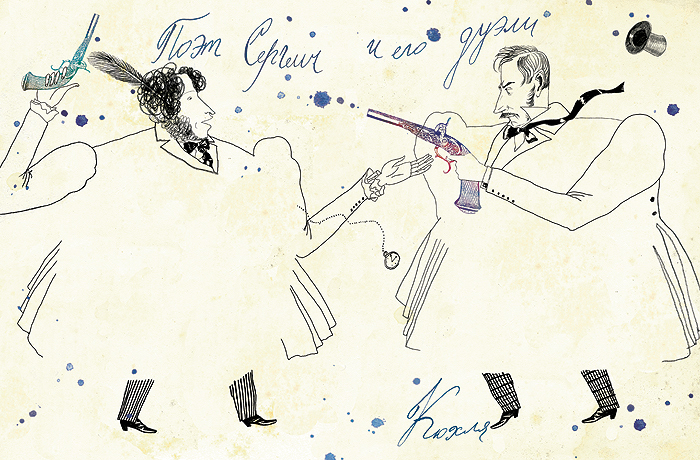 Поэт Сергеич и его дуэли
Кюхля